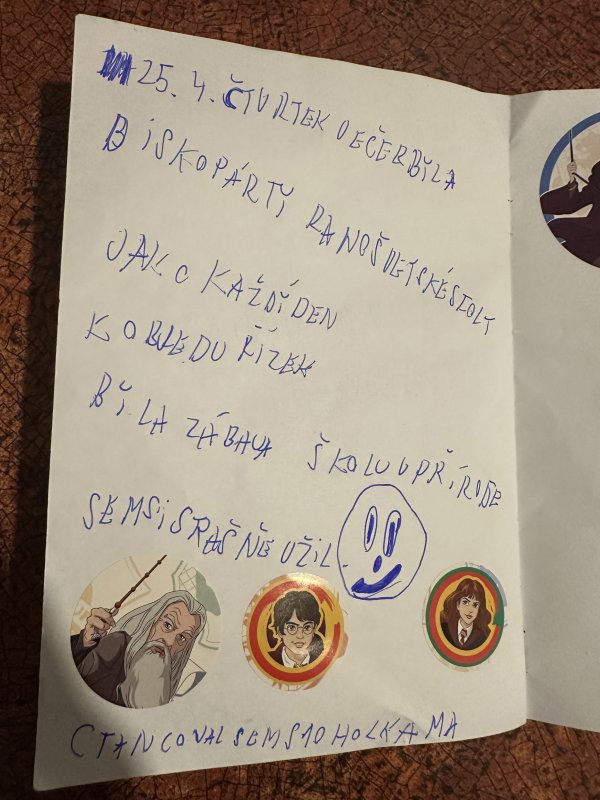 25. 4. ČTVRTEK VEČER BILA
DISKOPÁRTY RANO ŠVETSKÉ STOLY
JAKO KAŽDÍ DEN
K OBJEDU ŘÍZEK
BILA ZÁBAVA ŠKOLU V PŘÍRODE
SEM SI SRAŠNĚ UŽIL
CTANCOVAL SEM S 10 HOLKAMA